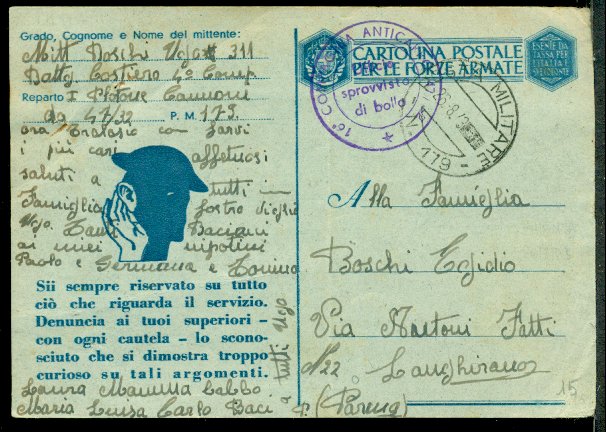 Grado, Cognome e Nome del mittente:
Mitt Boschi Ugo 311
Batt Costiero 4° Comp
Reparto I Plotone Cannoni
da 47/32 P. M. 179
ora tralascio con farsi
i più cari affettuosi
saluti a tutti
Famiglia
Ugo. Tanti Bacioni
ai miei nipotini
Paolo e Germana e Tonino
Sii sempre riservato su tutto
ciò che riguarda il servizio.
Denuncia ai tuoi superiori -
con ogni cautela - lo scono-
sciuto che si dimostra troppo
curioso su tali argomenti.
Laura Mamma Babbo
Maria Luisa Carlo Baci
a tutti Ugo
CARTOLINA POSTALE
PER LE FORZE ARMATE
ESENTE DA
TASSA PER
L'ITALIA E
sprovvista
di bollo
MILITARE
N. 179
Alla Famiglia
Boschi Egidio
Via Fatti
N° 22 Langhirano
(Parma)
15